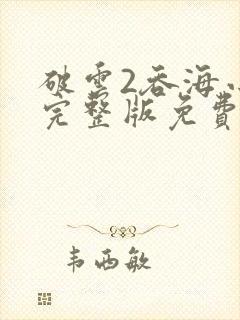 破雲2吞海
完整版免費
韦西敏